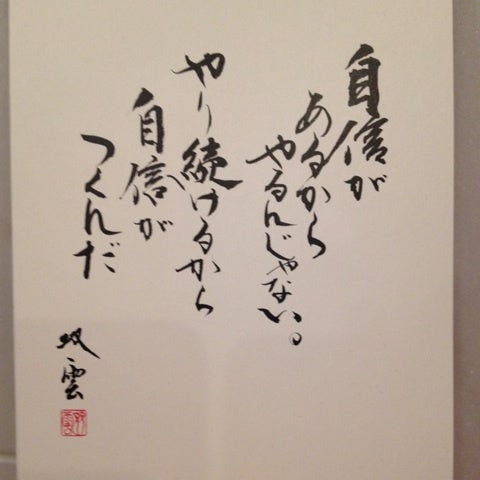 自信が
あるから
やるんじゃない。
やり続けるから
自信が
つくんだ
双雲